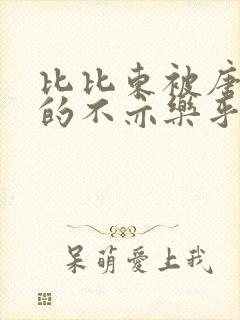 比比东被唐
的不亦乐乎
呆萌爱上我